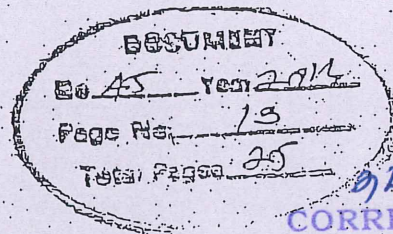 DOCUMENT
No 45 Year 2014
Page No. 13
Total Pages 25
CORRE